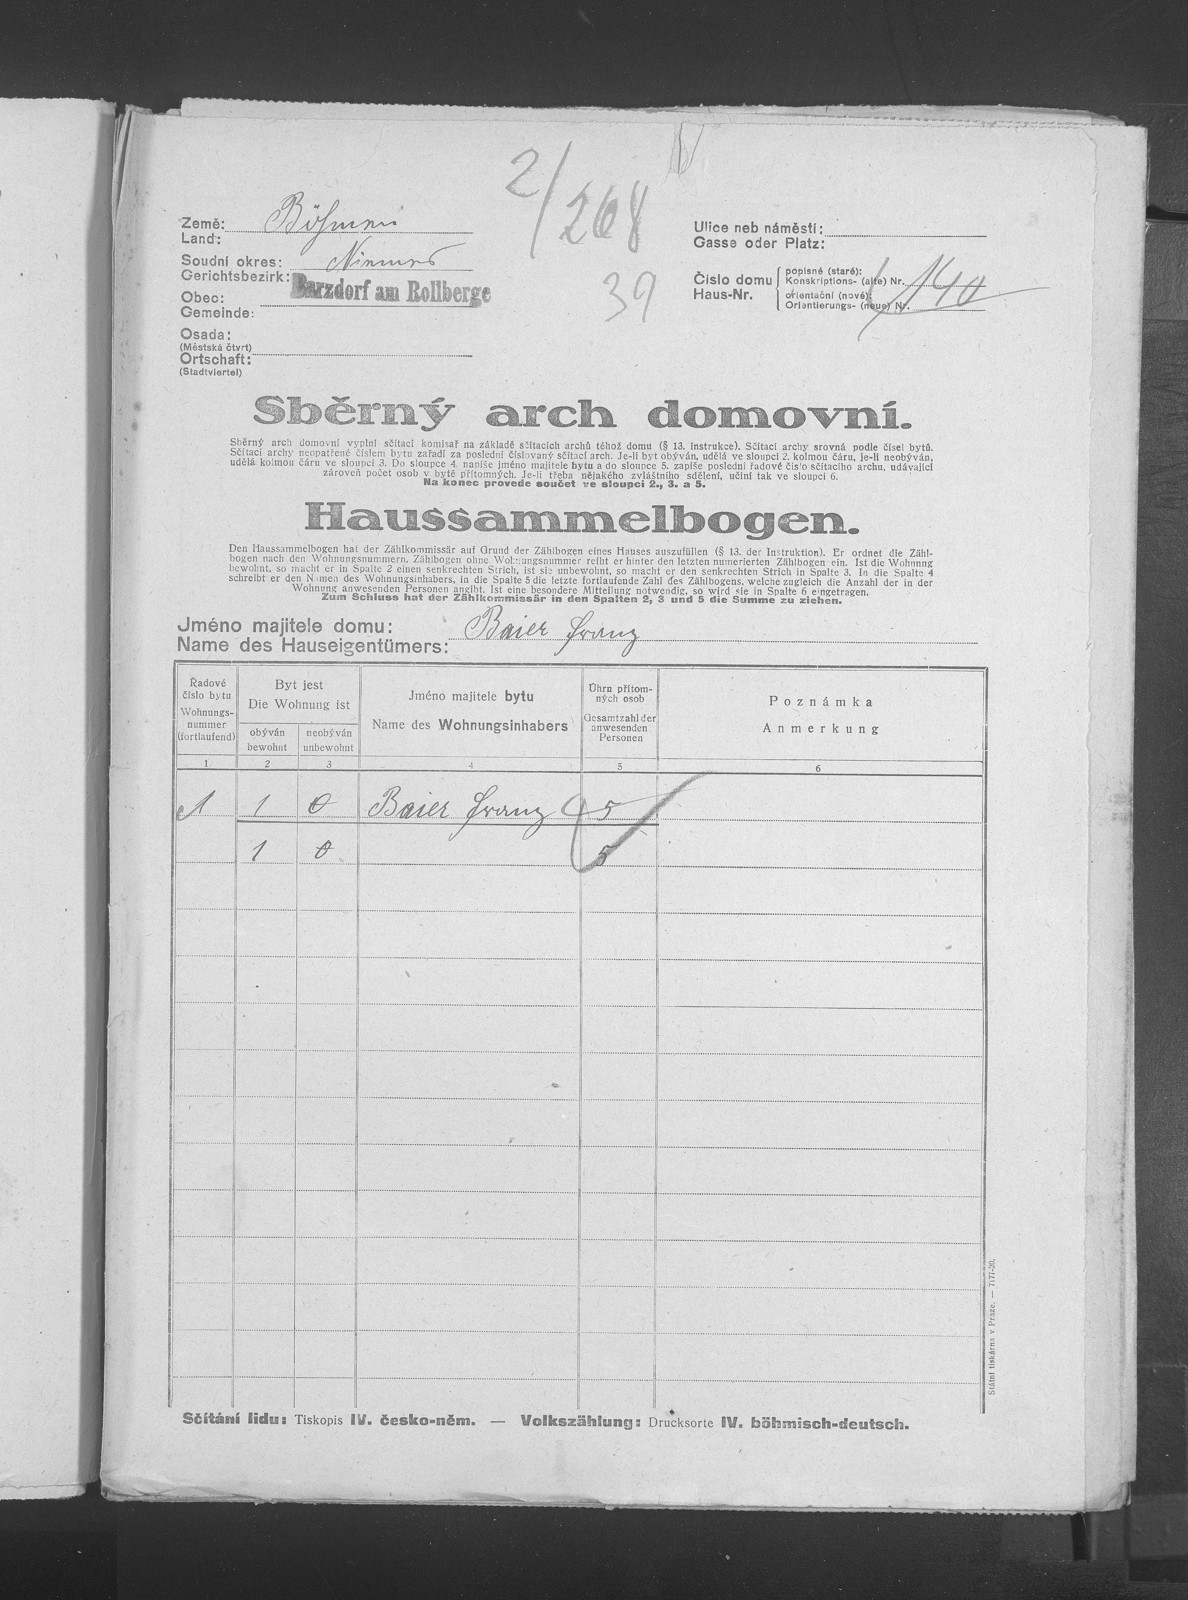 2/268
39
Země: Böhmen
Land:
Soudní okres: Niemes
Gerichtsbezirk:
Obec: Barzdorf am Rollberge
Gemeinde:
Osada:
(Městská čtvrt)
Ortschaft:
(Stadtviertel)
Ulice neb náměstí:
Gasse oder Platz:
Číslo domu
Haus-Nr.
popisné (staré):
Konskriptions- (alte) Nr. 140
orientační (nové):
Orientierungs- (neue) Nr.
Sběrný arch domovní.
Sběrný arch domovní vyplní sčítací komisař na základě sčítacích archů téhož domu (§ 13. instrukce). Sčítací archy srovná podle čísel bytů.
Sčítací archy neopatřené číslem bytu zařadí za poslední číslovaný sčítací arch. Je-li byt obýván, udělá ve sloupci 2. kolmou čáru, je-li neobýván,
udělá kolmou čáru ve sloupci 3. Do sloupce 4. napíše jméno majitele bytu a do sloupce 5. zapíše poslední řadové číslo sčítacího archu, udávající
zároveň počet osob v bytě přítomných. Je-li třeba nějakého zvláštního sdělení, učiní tak ve sloupci 6.
Na konec provede součet ve sloupci 2., 3. a 5.
Haussammelbogen.
Den Haussammelbogen hat der Zählkommissär auf Grund der Zählbogen eines Hauses auszufüllen (§ 13. der Instruktion). Er ordnet die Zähl-
bogen nach den Wohnungsnummern. Zählbogen ohne Wohnungsnummer reiht er hinter den letzten numerierten Zählbogen ein. Ist die Wohnung
bewohnt, so macht er in Spalte 2 einen senkrechten Strich, ist sie unbewohnt, so macht er den senkrechten Strich in Spalte 3. In die Spalte 4
schreibt er den Namen des Wohnungsinhabers, in die Spalte 5 die letzte fortlaufende Zahl des Zählbogens, welche zugleich die Anzahl der in der
Wohnung anwesenden Personen angibt. Ist eine besondere Mitteilung notwendig, so wird sie in Spalte 6 eingetragen.
Zum Schluss hat der Zählkommissär in den Spalten 2, 3 und 5 die Summe zu ziehen.
Jméno majitele domu: Baier Franz
Name des Hauseigentümers:
Řadové
číslo bytu
Wohnungs-
nummer
(fortlaufend)
Byt jest
Die Wohnung ist
obýván
bewohnt
neobýván
unbewohnt
Jméno majitele bytu
Name des Wohnungsinhabers
Úhrn přítom-
ných osob
Gesamtzahl der
anwesenden
Personen
Poznámka
Anmerkung
1 2 3 4 5 6
1 1 0 Baier Franz 5
1 0 5
Sčítání lidu: Tiskopis IV. česko-něm. — Volkszählung: Drucksorte IV. böhmisch-deutsch.
Státní tiskárna v Praze. — 7177-30.